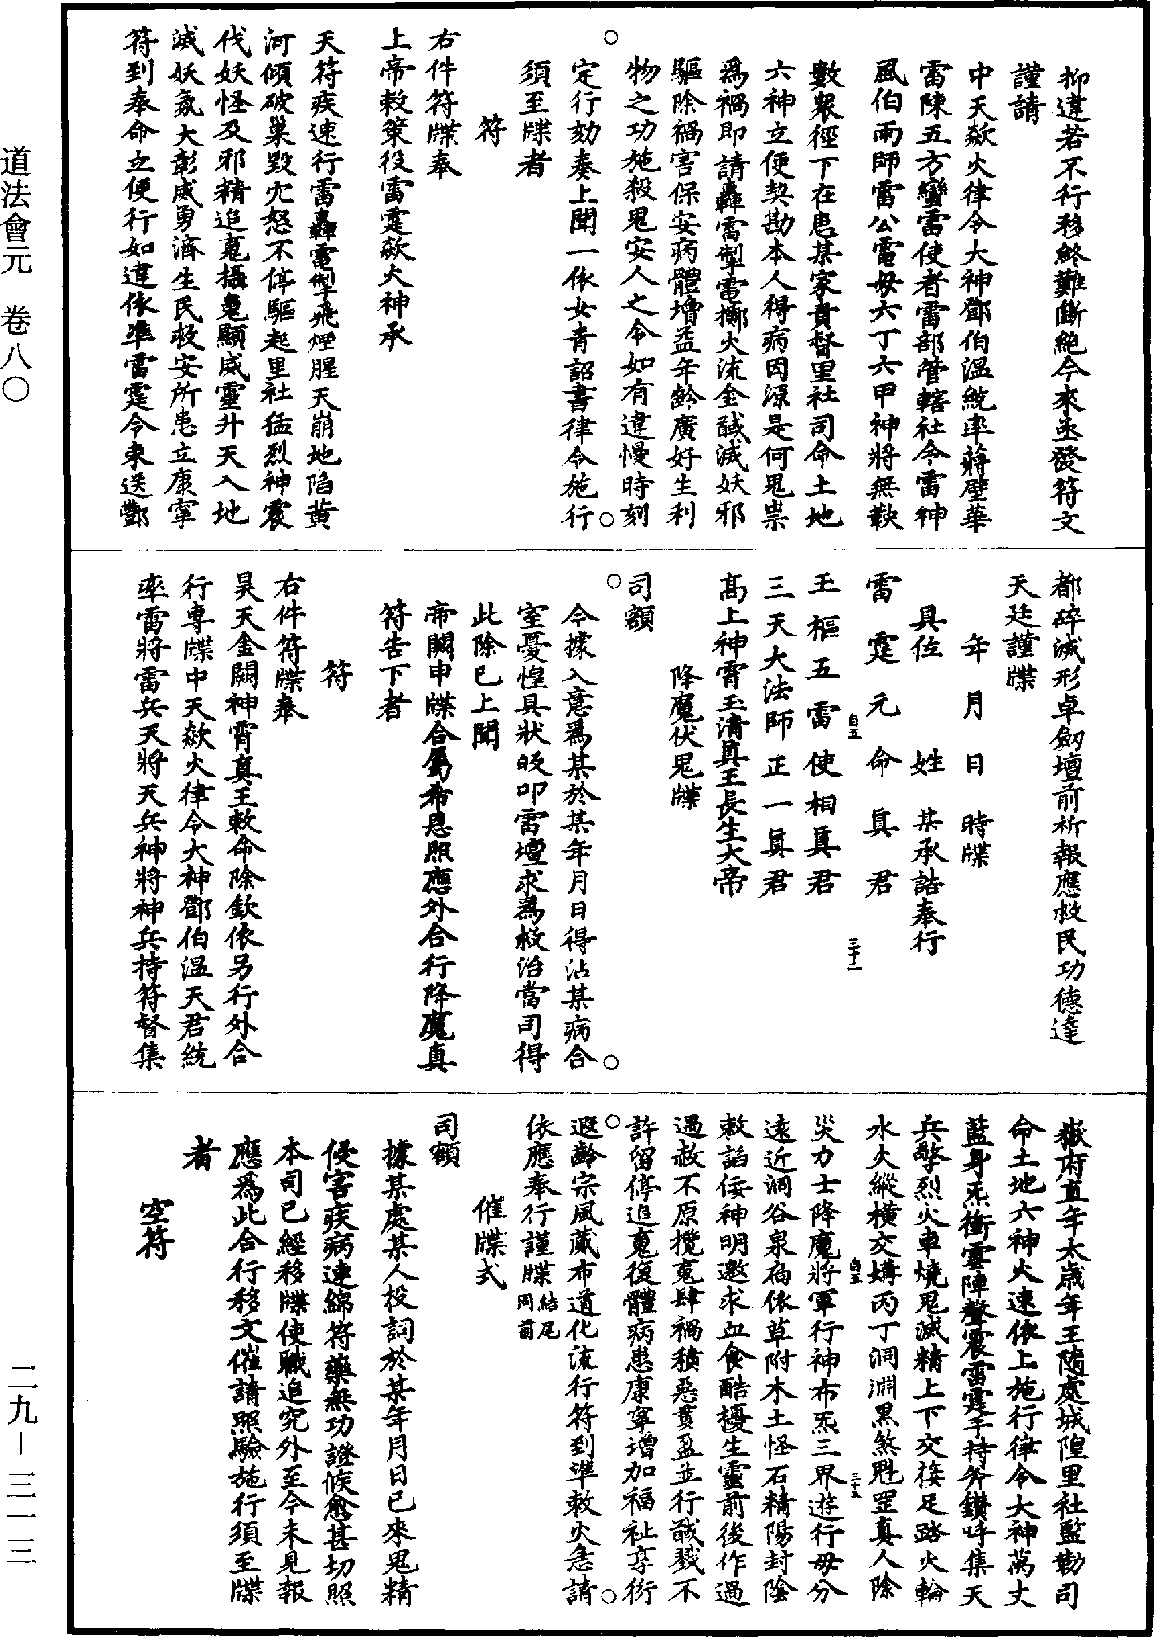 抑違若不行移終難斷絕今來亟發符文
謹請
中天歘火律令大神鄧伯溫統率蔣壁華
雷陳五方蠻雷使者雷部管轄社令雷神
風伯雨師雷公電母六丁六甲神將無鞅
數衆徑下在患某家責督里社司命土地
六神立便契勘本人得病因源是何鬼祟
爲禍即請轟雷掣電擲火流金馘滅妖邪
驅除禍害保安病體增益年齡廣好生利
物之功施殺鬼安人之令如有違慢時刻
定行劾奏上聞一依女青詔書律令施行
須至牒者
符
右件符牒奉
上帝敕策役雷霆歘火神承
天符疾速行雷轟電掣飛煙腥天崩地陷黄
河傾破巢毀穴怒不停驅起里社猛烈神震
伐妖怪及邪精追鬼攝鬼顯威靈升天入地
滅妖氛大彰威勇濟生民救安所患立康寧
符到奉命立便行如違依準雷霆令東送酆
都碎滅形卓劒壇前祈報應救民功德達
天廷謹牒
年月日　時牒
具位　姓　某承誥奉行
雷霆元命真君
玉樞五雷使相真君
三天大法師正一真君
高上神霄玉清真王長生大帝
降魔伏鬼牒
司額
今據入意爲某於某年月日得沾某病合
室憂惶具狀皈叩雷壇求爲救治當司得
此除已上聞
帝闕申牒合屬希恩照應外合行降魔真
符告下者
符
右件符牒奉
昊天金闕神霄真王敕命除欽依另行外合
行專牒中天歘火律令大神鄧伯溫天君統
率雷將雷兵天將天兵神將神兵持符督集
嶽府直年太歲年王隨處城隍里社監勘司
命土地六神火速依上施行律令大神萬丈
藍身炁衝雲陣聲震雷霆手持斧鑽呼集天
兵擎烈火車燒鬼滅精上下交接足踏火輪
水火縱横交媾丙丁洞淵黑煞魁罡真人除
災力士降魔將軍行神布炁三界遊行毋分
遠近洞谷泉扃依草附木土怪石精陽封陰
敕諂佞神明邀求血食酷擾生靈前後作過
過赦不原攬冤肆禍積惡貫盈並行馘戮不
許留停追䰟復體病患康寧增加福祉享衍
遐齡宗風藏布道化流行符到準敕火急請
依應奉行謹牒結尾同前
催牒式
司額
據某處某人投詞於某年月日已來鬼精
侵害疾病連綿符藥無功證候愈甚切照
本司已經移牒使職追究外至今未見報
應爲此合行移文催請照驗施行須至牒
者
空符
道法會元　卷八〇
二九—三一三